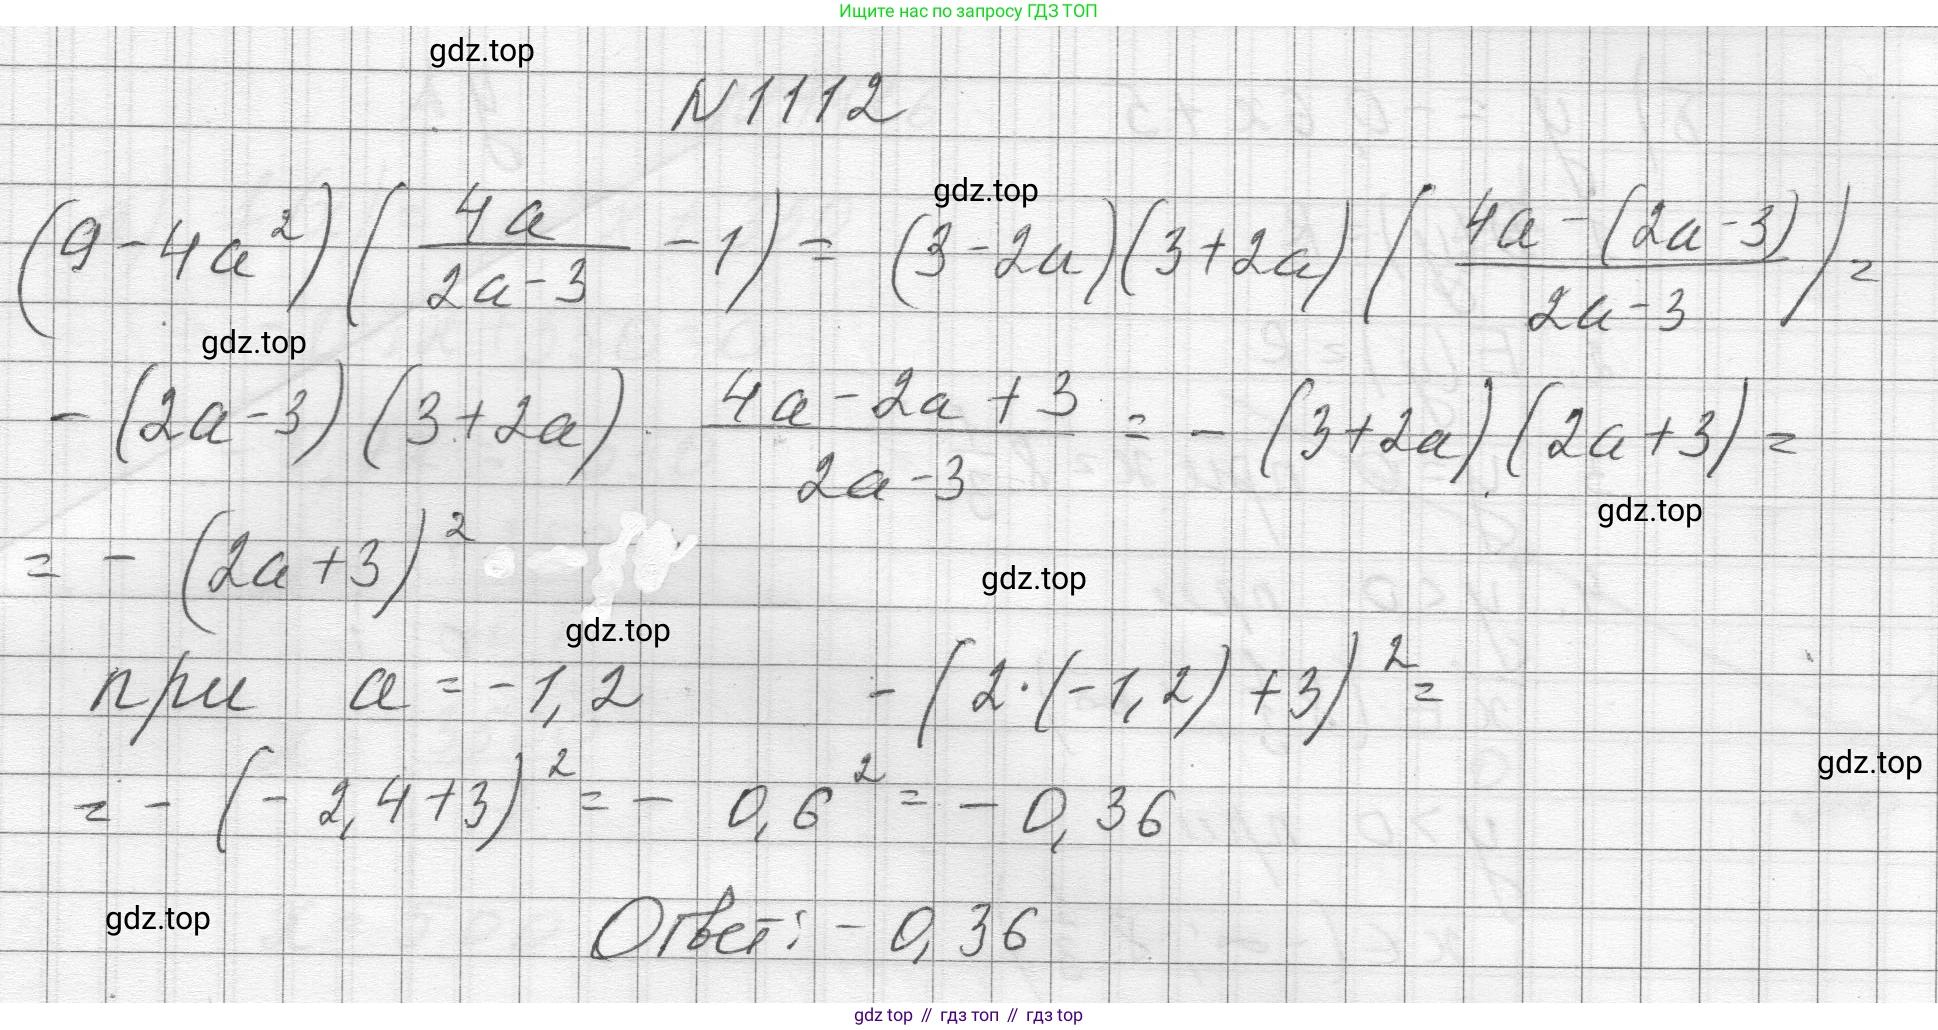 Ищите нас по запросу ГДЗ ТОП
gdz.top
N 1112
gdz.top
(9 - 4a²) (4a/(2a - 3) - 1) = (3 - 2a)(3 + 2a) ((4a - (2a - 3))/(2a - 3)) =
gdz.top
- (2a - 3)(3 + 2a) · (4a - 2a + 3)/(2a - 3) = - (3 + 2a)(2a + 3) =
gdz.top
= - (2a + 3)²
gdz.top
gdz.top
при a = -1,2 - (2·(-1,2) + 3)² =
gdz.top
= - (- 2,4 + 3)² = - 0,6² = - 0,36
gdz.top
Ответ: - 0,36
gdz top // гдз топ // гдз top